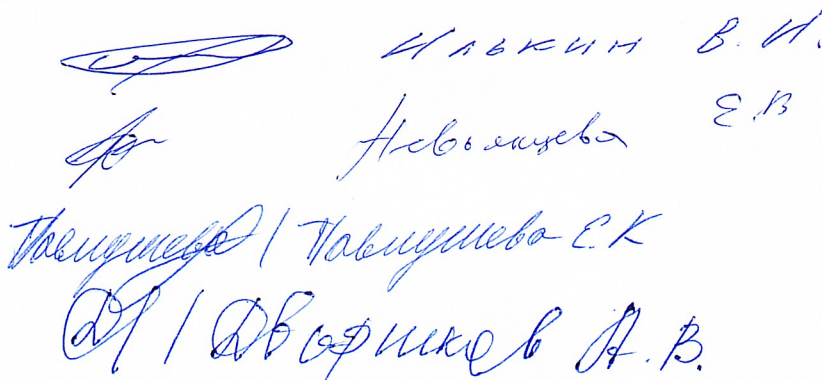 Илькин В. И.
Невьянцева Е.В
/ Павлушева Е К
/ Дворников А. В.